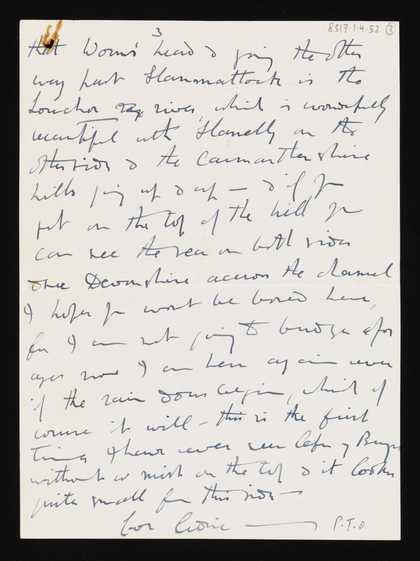 8517.1.4.52 (3
3
that Worm's head & going the other
way past Llanmadock is the
Loucher river, which is wonderfully
beautiful with Llanelly on the
other side & the Carmarthenshire
hills going up & up — & if you
get on the top of the hill you
can see the sea on both sides
one Devonshire accross the channel
I hope you wont be bored here,
for I am not going to budge for
ages now I am here again even
if the rain does begin, which of
course it will – this is the first
time I have ever seen Cefn y Bryn
without a mist on the top & it looks
quite small from this side —
Cedric — P.T.O